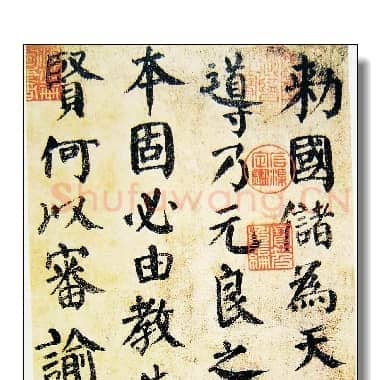 勅國儲為天
導乃元良之
本固必由教
賢何以審諭
Shufawang.CN